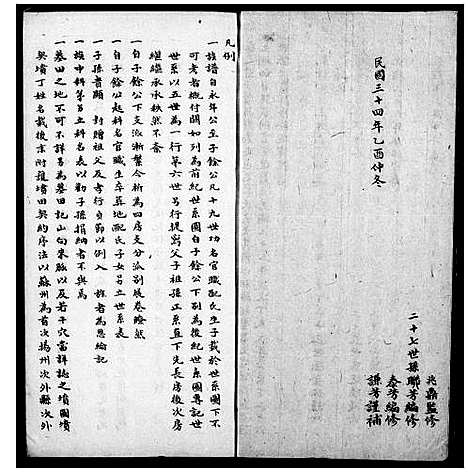 民國三十四年乙酉仲冬
二十七世孫聯芳編修
兆鼎監修
泰芳編修
謙芳謹補
凡例
一族譜自永年公至子餘公凡十九世功名官職配氏生子載於世系圖下不
可考者概付闕如列為前紀世系圖自子餘公下列為後紀世系圖專記世
世系以五世為一行第六世另行提寫父子祖孫正系直下先長房後次房
繼繼承承秩然不紊
一自子餘公下支派漸繁今析為四房支分派別展卷瞭然
一自子餘公起科名官職生卒葬地配氏子女另立世系表
一子孫貴顯封贈祖父及孝行貞節以例入族者為恩綸記
一族中科第另立科名表以勸子孫捐納者不與焉
一墓田之地不可不詳另為墓田記山向來脈以及若干穴當詳誌之墳圖墳
與墳丁姓名載後末附護墳田契約序法以蘇州為首次揚州次外縣次外